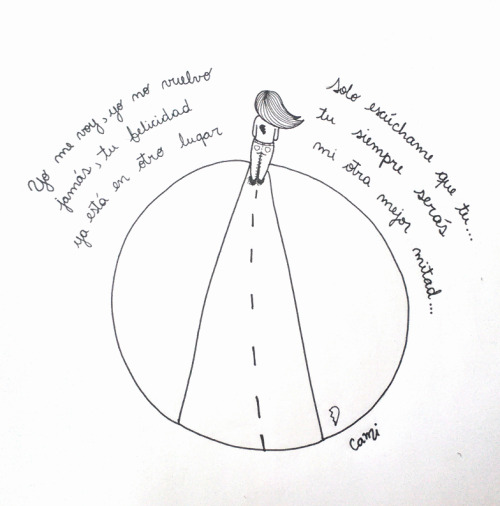 Yo me voy, yo no vuelvo
jamás, tu felicidad
ya está en otro lugar
Solo escúchame que tu...
tu siempre serás
mi otra mejor mitad...
Cami